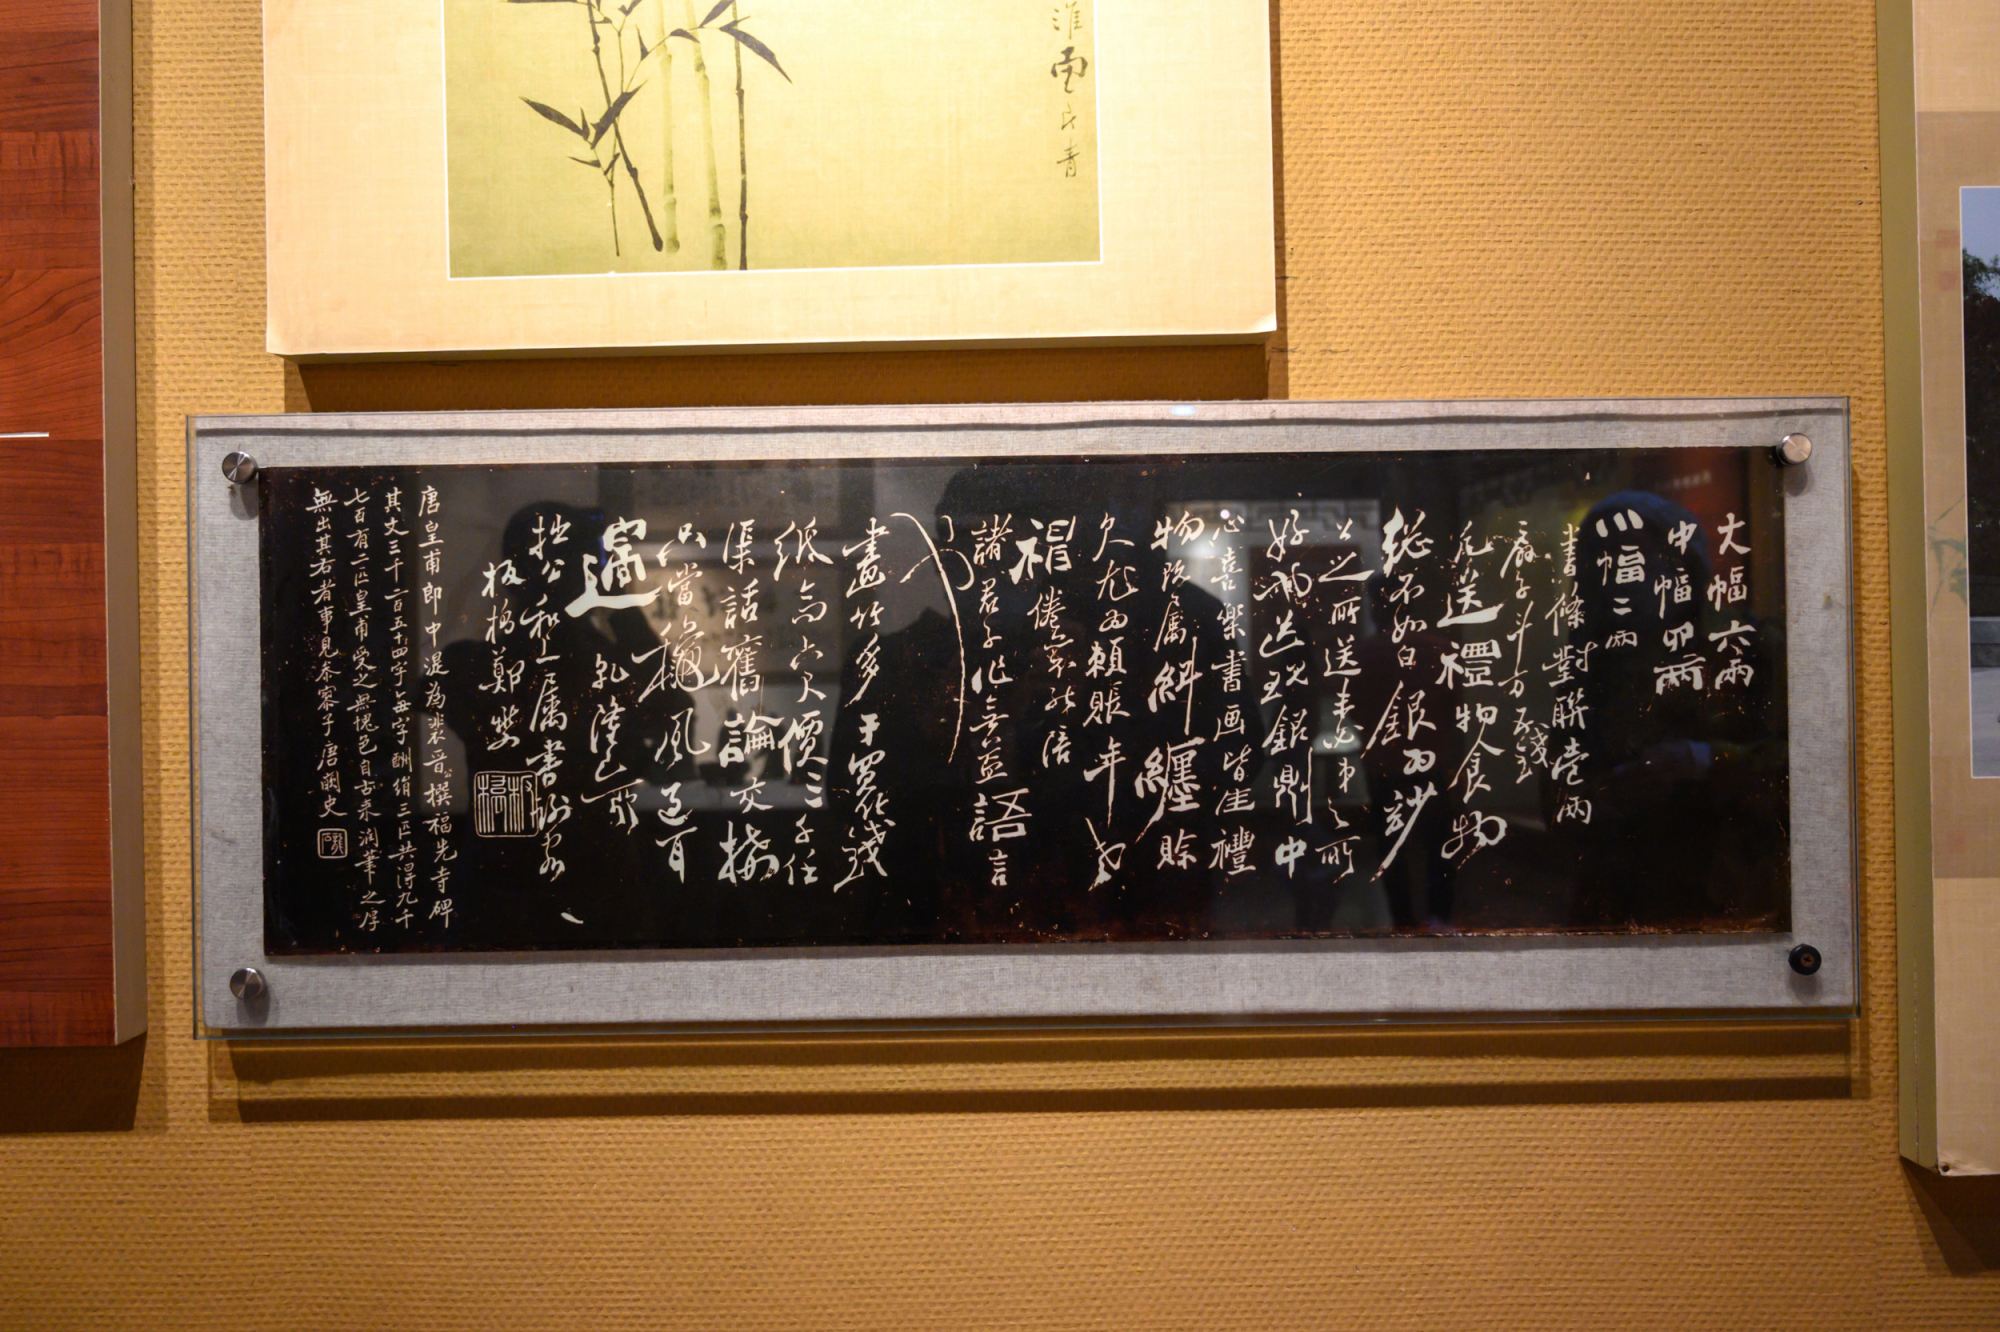 大幅六兩
中幅四兩
小幅二兩
書條對聯壹兩
扇子斗方五錢
凡送禮物食物
總不如白銀為妙
公之所送未必弟之所
好也送現銀則中
心喜樂書画皆佳禮
物既屬糾纏賒
欠尤為賴賬年老
神倦亦不能陪
諸君子作無益語言
也
畫竹多于買竹錢
紙高六尺價三千任
渠話舊論交接
只當龝風過耳
邊 乾隆己卯
拙公和上屬書謝客
板橋鄭燮
板橋
唐皇甫郎中湜為裴晉公撰福先寺碑
其文三千二百五十四字每字酬絹三匹共得九千
七百有二匹皇甫受之無愧色自古來潤筆之厚
無出其右者事見參寥子唐闕史